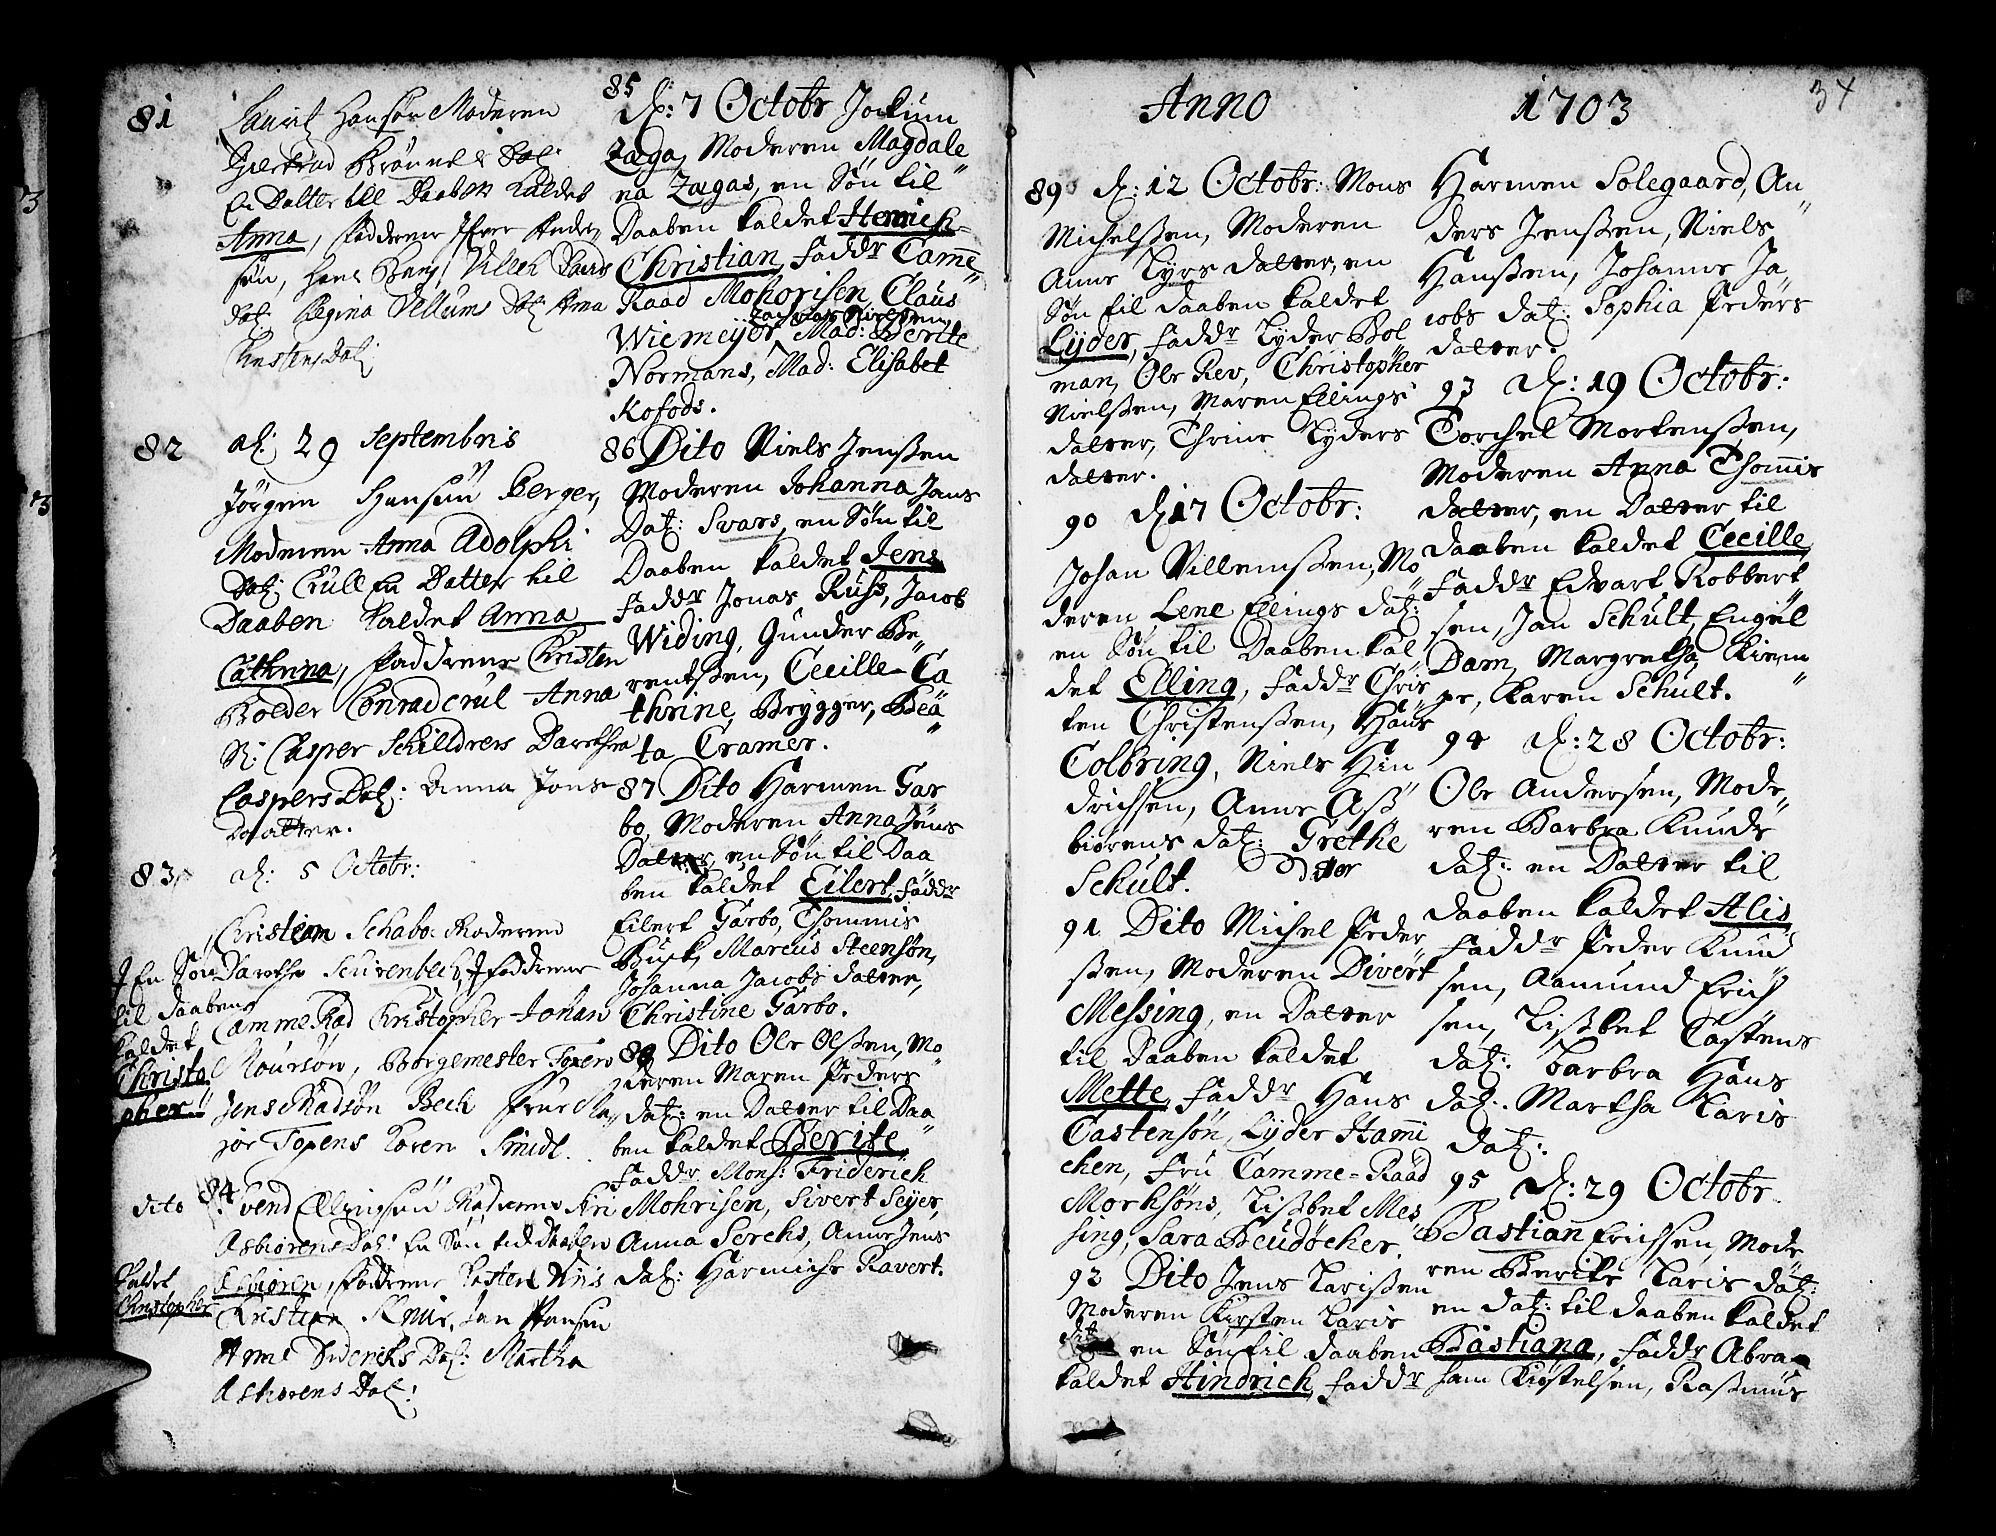 81 Laurit Hansøn Moderen
Giertrud Brönnels Dat:
En Datter till Daaben Kaldet
Anna, Fadderne Ifver Ander„
søn, Hans Bang, Villeh Davids
Dat: Regina Vellums Dat: Anna
Christens Dat:
82 d: 29 Septembris
Jørgen Hansøn Berger,
Moderen Anna Adolphi
Dat: Crull En Datter til
Daaben Kaldet Anna
Cathrina, Fadderne Christen
Bolder Conrad Crul Anna
Sl: Casper Schilldrers Darethea
Caspers Dat: Anna Jons
Daatter.
83 d: 5 Octobr:
Christian Schabo Moderenn
Darethe Surenbech, Fadderne
Camme Rad Christopher Johan
Moursøn, Borgemester Toxen
Jens Madsøn Bech Frue Ma„
jor Topens Karen Smidt.
En Søn
til Daaben
Kaldet
Christo
pher
dito 84 Svend Ellingsøn Moderene Siri
Asbiørens Dat: En Søn till Daaben
Kaldet
Christopher
Esbiøren, Fadderne Kasten Friis
Christian Knus, Jan Hansen
Anne Diderichs Dat: Martha
Asbiørens Dat:
85 d: 7 Octobr Jockum
Zæga, Moderen Magdale
na Zægas, en Søn til
Daaben kaldet Henrich=
Christian, Faddr Camē
Raad Mohorisen, Claus
Zacharias Nielsen
Wiemeyer, Mad: Berite
Normans, Mad: Elisabet
Kofods.
86 Dito Niels Jenssen
Moderen Johanna Jans
Dat: Svars, en Søn til
Daaben kaldet Jens
Faddr Jonas Russ, Jacob
Widing, Gunder Be„
rentssen, Cecille Ca
thrine, Brygger, Bea
ta Cramer.
87 Dito Harmen Gar
bo, Moderen Anna Jens
Datter, en Søn til Daa
ben kaldet Eilert, Faddr
Eilert Garbo, Thommis
Buck, Marcus Steensøn,
Johanna Jacobs Datter,
Christine Garbo.
88 Dito Ole Olssen, Mo
deren Maren Peders
dat: en Datter til Daa
ben kaldet Berite,
Faddr Mons: Friderich
Mohrisen, Sivert Seyer,
Anna Serchs, Anne Jens
dat: Harmiche Ravert.
Anno 1703 34
89 d: 12 Octobr: Mons
Michelssen, Moderen
Anne Lyrs datter, en
Søn til daaben kaldet
Lyder, Faddr Lyder Bol
man, Ole Rev, Christopher
Nielssen, Maren Ellings
datter, Thrine Lyders
datter.
90 d: 17 Octobr:
Johan Villemssen, Mo
deren Lene Ellings dat:
en Søn til Daaben kal
det Elling, Faddr Chris
ten Christenssen, Hans
Colbring, Niels Hin
drichsen, Anne Ass
biørens dat: Grethe
Schult.
91. Dito Michel Peder
ssen, Moderen Divert
Messing, en Datter
til Daaben kaldet
Mette, Faddr Hans
Castensøn, Lyder Hami
chen, Fru Camme=Raad
Morhsøns, Lissbet Mes
sing, Sara Beudøcher.
92 Dito Jens Larissen
Moderen Kirsten Laris
dat: en Søn til daaben
kaldet Hindrich, Faddr
Harmen Solegaard, An
ders Jenssen, Niels
Hanssen, Johanne Ja
cobs dat: Sophia Peders
datter.
93 d: 19 Octobr:
Torchel Mortenssen,
Moderen Anna Thomis
datter, en Datter til
daaben kaldet Cecille
Faddr Edvart Robbert
sen, Jan Schult, Engel
Dam, Margretha Kiem
pe, Karen Schult.
94 d: 28 Octobr:
Ole Andersen, Mode„
ren Barbra Knuds
dat: en Datter til
daaben kaldet Alis
Faddr Peder Knud
sen, Aamund Erich
sen, Lissbet Castens
dat: Barbra Hans
dat: Martha Laris
dat:
95 d: 29 Octobr.
Bastian Erichsen, Mode
ren Berite Laris dat:
en dat: til daaben kaldet
Bastiana, Faddr Abra
ham Kiøstelsen, Rassmus